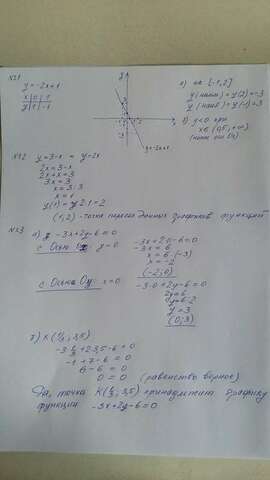 №1
y = -2x+1
x | 0 | 1
y | 1 | -1
y
x
y=-2x+1
а) на [-1;2]
y(наим) = y(2) = -3
y(наиб) = y(-1) = 3
б) y<0 при
x∈(0,5; +∞)
(ниже оси Ox)
№2 y=3-x y=2x
2x=3-x
2x+x=3
3x=3
x=3:3
x=1
y(1)=2·1=2
(1;2) - точка пересеч данных графиков функций
№3 а) -3x+2y-6=0
с Осью Ox: y=0
-3x+2·0-6=0
-3x=6
x=6:(-3)
x=-2
(-2;0)
с Осью Oy: x=0
-3·0+2y-6=0
2y=6
y=6:2
y=3
(0;3)
б) K(1/3; 3,5)
-3·1/3+2·3,5-6=0
-1+7-6=0
6-6=0
0=0 (равенство верное)
Да, точка K(1/3; 3,5) принадлежит графику
функции -3x+2y-6=0